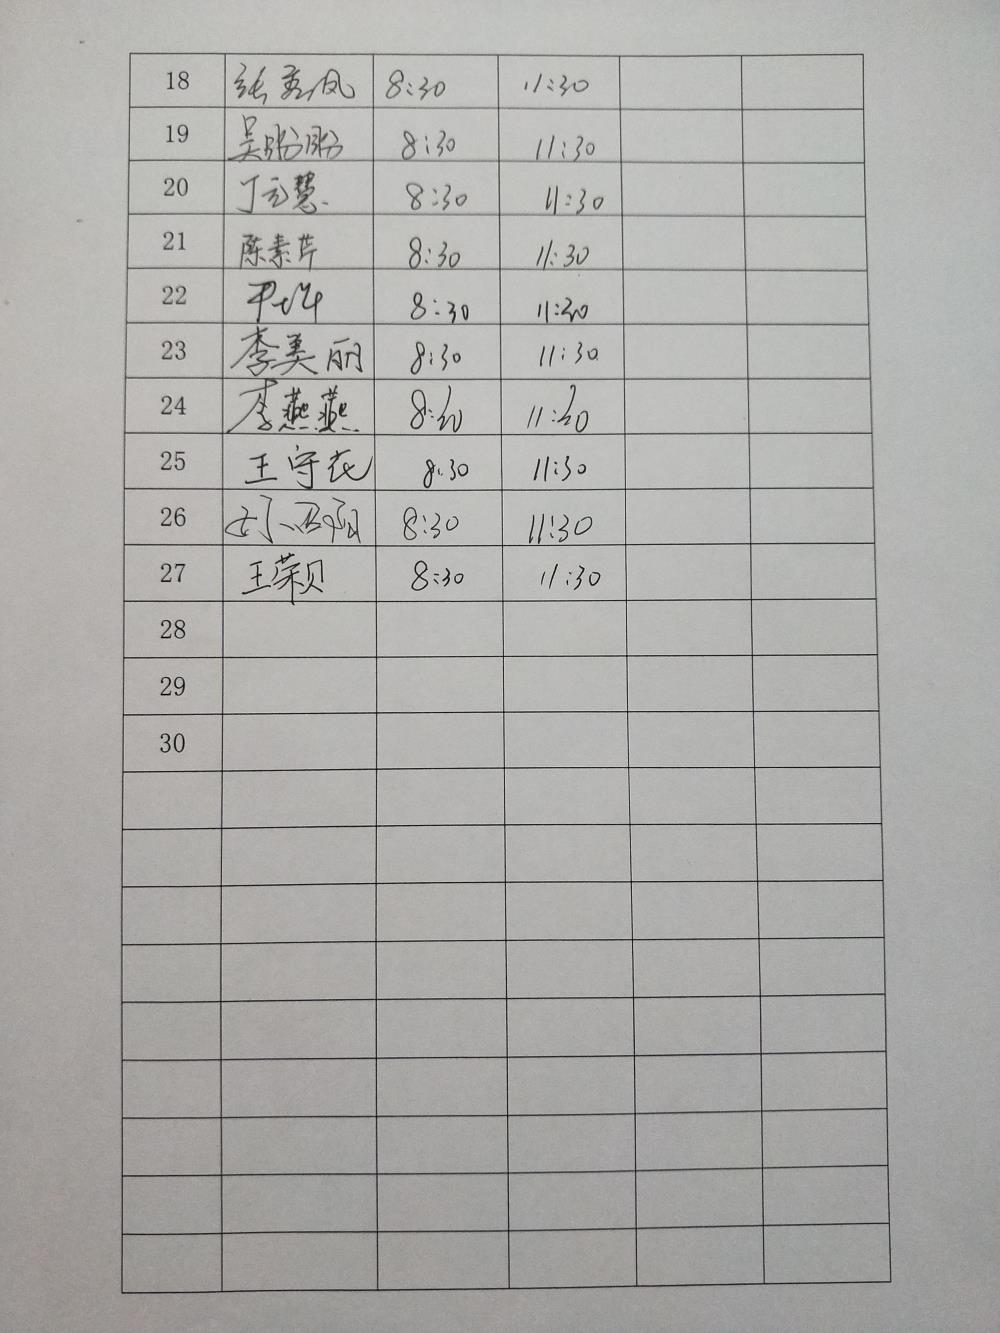 18 张秀凤 8:30 11:30
19 吴盼盼 8:30 11:30
20 丁元慧 8:30 11:30
21 陈素芹 8:30 11:30
22 尹 8:30 11:30
23 李美丽 8:30 11:30
24 李燕燕 8:30 11:30
25 王守花 8:30 11:30
26 8:30 11:30
27 王荣贝 8:30 11:30
28
29
30